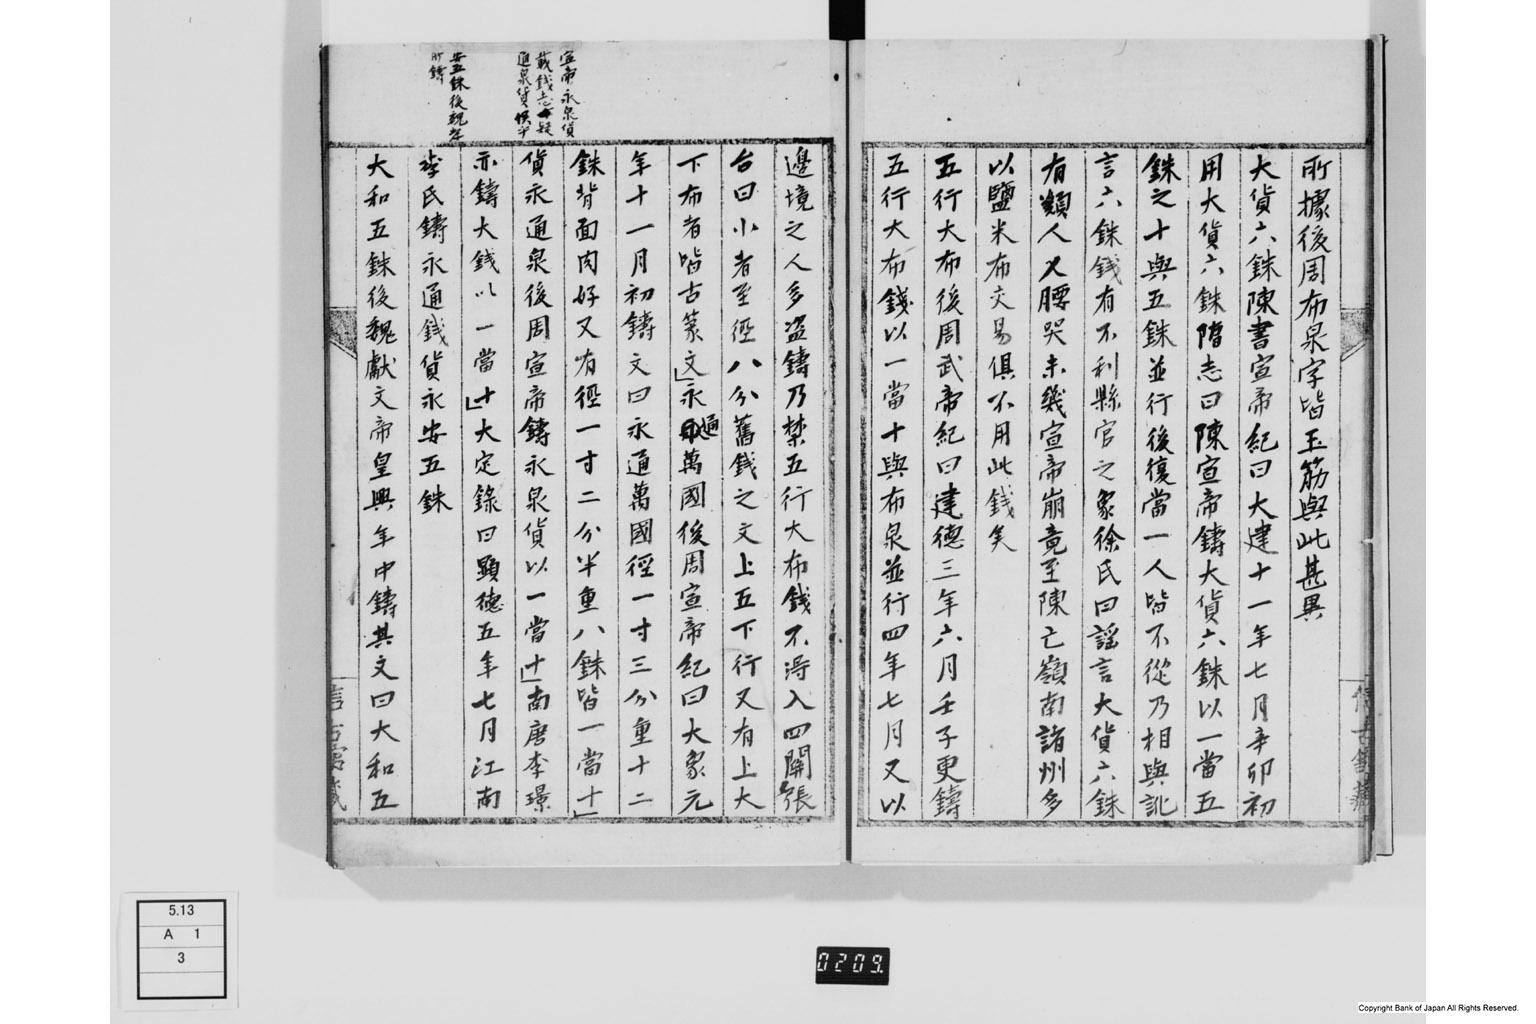 所據後周布泉字皆玉筋與此甚異
大貨六銖陳書宣帝紀曰大建十一年七月辛卯初
用大貨六銖隋志曰陳宣帝鑄大貨六銖以一當五
銖之十與五銖並行後復當一人皆不從乃相與訛
言六銖錢有不利縣官之象徐氏曰謠言大貨六銖
有類人乂腰哭未幾宣帝崩竟至陳亡嶺南諸州多
以鹽米布交易俱不用此錢矣
五行大布後周武帝紀曰建德三年六月壬子更鑄
五行大布錢以一當十與布泉並行四年七月又以
邊境之人多盗鑄乃禁五行大布錢不得入四關張
台曰小者至徑八分舊錢之文上五下行又有上大
下布者皆古篆文」永通萬國後周宣帝紀曰大象元
年十一月初鑄文曰永通萬國徑一寸三分重十二
銖背面肉好又有徑一寸二分半重八銖皆一當十」
貨永通泉後周宣帝鑄永泉貨以一當十」南唐李璟
亦鑄大錢以一當十」大定錄曰顯德五年七月江南
李氏鑄永通錢貨永安五銖
大和五銖後魏獻文帝皇興年中鑄其文曰大和五
宣帝永泉貨
載錢志疑
通泉貨
安五銖後魏
所鑄
信古宝藏
5.13
A 1
3
0209.
Copyright Bank of Japan All Rights Reserved.